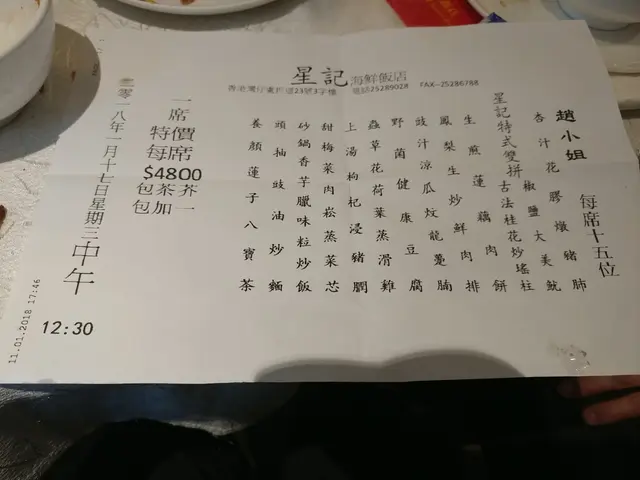 星記海鮮飯店
香港灣仔盧押道23號3字樓 電話25289028 FAX-25286788
趙小姐 每席十五位
杏汁花膠燉豬肺
星記特式雙拼 椒鹽大美魷 古法桂花炒瑤柱
生煎蓮藕肉餅
鳳梨生炒鮮肉排
豉汁涼瓜炆龍躉腩
野菌健康豆腐
蟲草花荷葉蒸滑雞
上湯枸杞浸豬膶
甜梅菜肉崧蒸菜芯
砂鍋香芋臘味粒炒飯
頭抽豉油炒麵
養顏蓮子八寶茶
一席
特價
每席
$4800
包茶芥
包加一
二零一八年一月十七日星期三中午
12:30
11.01.2018 17:46